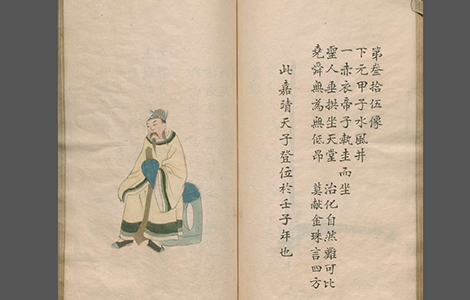 第叁拾伍像
下元甲子水風井
一赤衣帝子執圭而坐
聖人垂拱坐天堂　治化自然難可比
堯舜無為無低昂　奠献金珠言四方
此嘉清天子登位於壬子年也